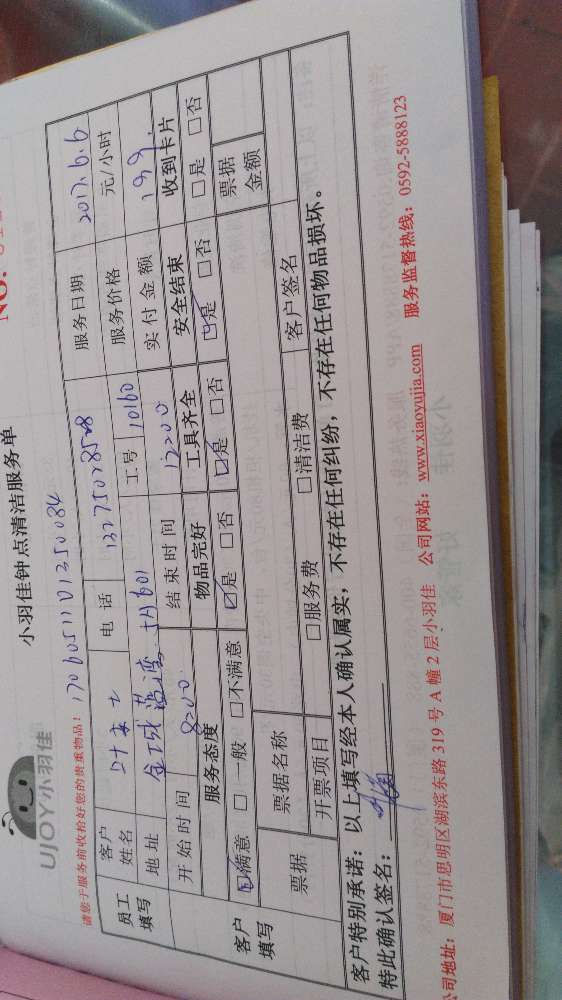 UJOY小羽佳
小羽佳钟点清洁服务单
NO:
请您于服务前收拾好您的贵重物品!
员工填写
客户姓名 叶女士 电话 服务日期 2017.6.6
地址 工号 10160 服务价格 元/小时
开始时间 8:00 结束时间 12:00 实付金额 199
客户填写
服务态度 物品完好 工具齐全 安全结束 收到卡片
☑满意 □一般 □不满意 ☑是 □否 ☑是 □否 ☑是 □否 □是 □否
票据 票据名称 票据金额
开票项目 □服务费 □清洁费 客户签名
客户特别承诺:以上填写经本人确认属实,不存在任何纠纷,不存在任何物品损坏。
特此确认签名:
公司地址:厦门市思明区湖滨东路319号A幢2层小羽佳 公司网站:www.xiaoyujia.com 服务监督热线:0592-5888123